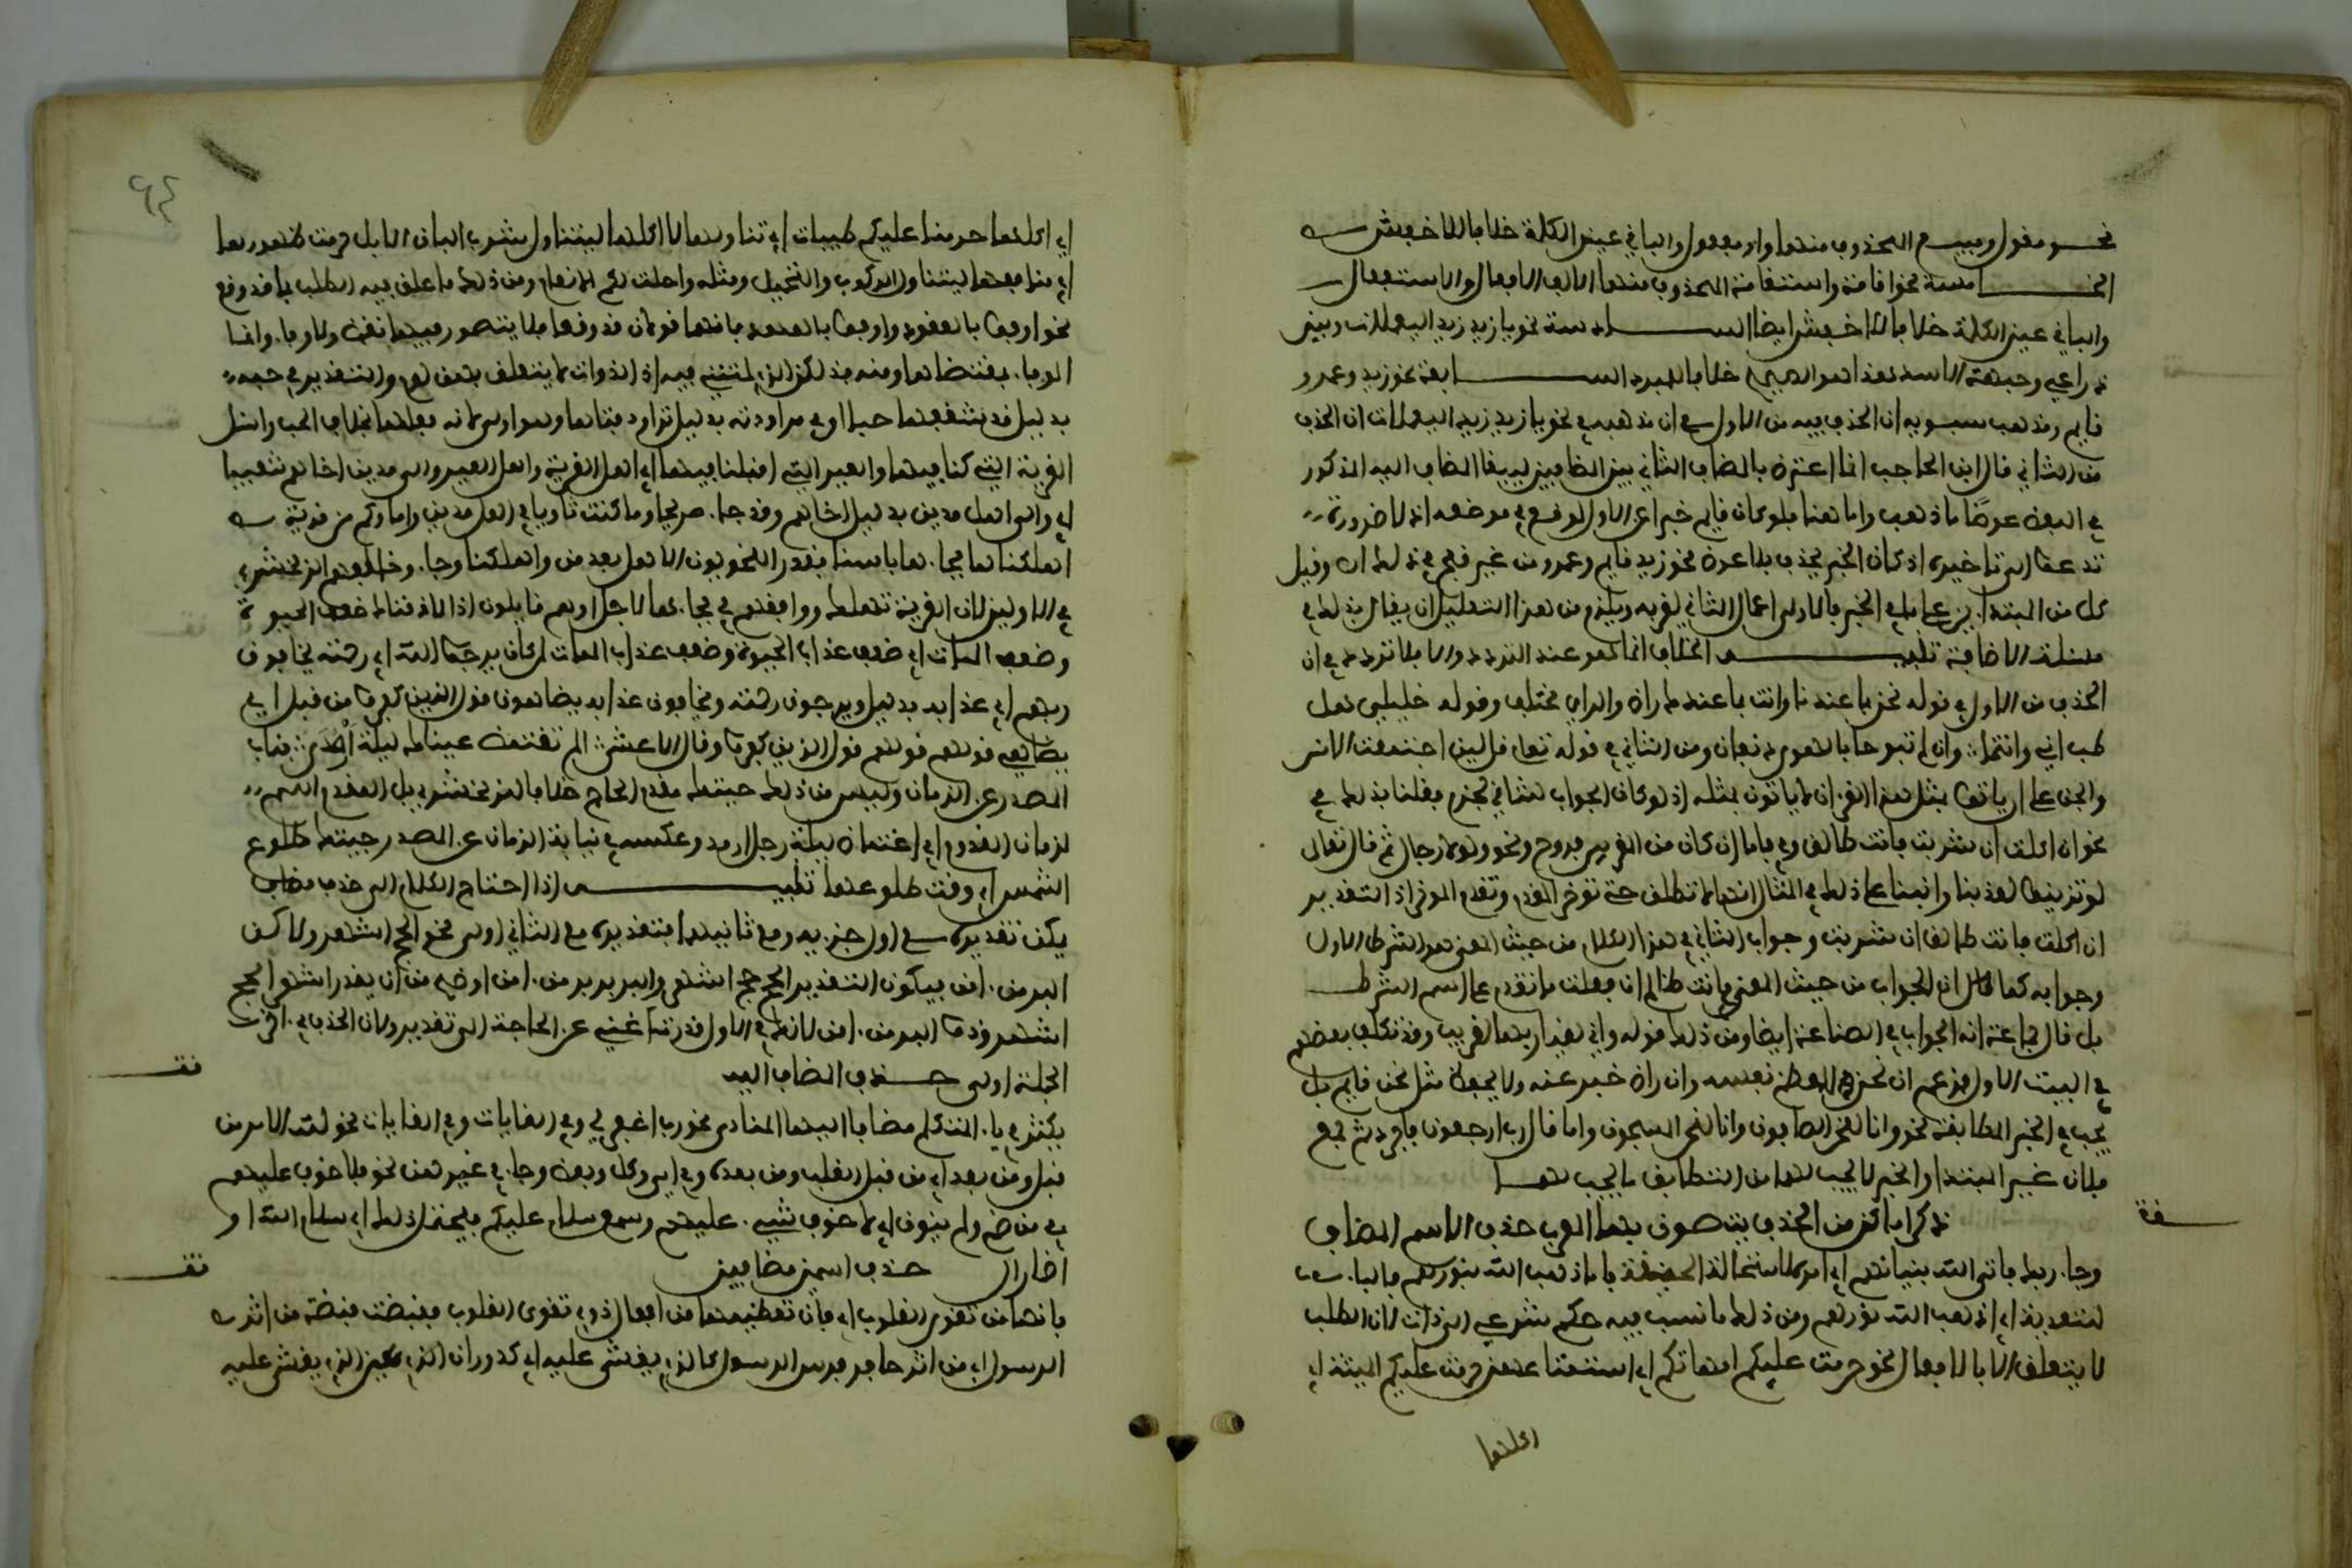 نحو مقول ومبيع المحذوف منهما واو مفعول والباقي عين الكلمة خلافا للاخفش
الخامسة نحو اقامة واستقامة المحذوف منهما الالف الافعال والاستفعال
والباقي عين الكلمة خلافا للاخفش ايضا السادسة نحو يا زيد زيد اليعملات وبين
ذراعي وجبهة الاسد هذا هو الصحيح خلافا للمبرد السابعة نحو زيد وعمرو
قايم ومذهب سيبويه ان الحذف فيه من الاول مع ان مذهبه في نحو يا زيد زيد اليعملات ان الحذف
من الثاني قال ابن الحاجب انما اعترض بالمضاف الثاني بين المضافين ليبقا المضاف اليه المذكور
في اللفظ عوضا مما ذهب واما هنا فلو كان قايم خبرا عن الاول لوقع في موضعه اذ لا ضرورة
تدعوا الى تاخيره اذ كان الخبر يحذف بلا عوض نحو زيد قايم وعمرو من غير قبح في ذلك اه وقيل
كل من المبتدا ين عامل في الخبر فالاولى اعمال الثاني لقربه ويلزم من هذا التعليل ان يقال بذلك في
مسئلة الاضافة تنبيه الخلاف انما هو عند التردد والا فلا تردد في ان
الحذف من الاول في قوله نحن بما عندنا وانت بما عندك راض والراي مختلف وقوله خليلي هل
طب اني وانتما وان لم تبوحا بالهوى دنفان ومن الثاني في قوله تعلى قل لين اجتمعت الانس
والجن على ان ياتوا بمثل هذا القرءان لا ياتون بمثله اذ لو كان الجواب للثاني لجزم فقلنا بذلك في
نحو ان اكلت ان شربت فانت طالق وفي فاما ان كان من المقربين فروح ونحو ولولا رجال ثم قال تعالى
لو تزيلوا لعذبنا وانبنا على ذلك في المثال انها لا تطلق حتى توخر المقدم وتقدم الموخر اذ التقدير
ان اكلت فانت طالق ان شربت وجواب الثاني في هذا الكلام من حيث المعنى هو الشرط الاول
وجوابه كما قال ان الجواب من حيث المعنى في انت ظالم ان فعلت ما تقدم على اسم الشرط
بل قال جماعة انه الجواب في الصناعة ايضا ومن ذلك قوله واني لقيار بها لغريب وقد تكلف بعضهم
في البيت الاول فزعم ان نحن للمعظم نفسه وان راض خبر عنه ولا يحفظ مثل نحن قايم بل
يجب في الخبر المطابقة نحو وانا لنحن الصافون وانا لنحن المسبحون واما قال رب ارجعون فافرد ثم جمع
فلان غير المبتدا والخبر لا يجب لهما من التطابق ما يجب لهما
ذكر اماكن من الحذف يتصون بها المعرب حذف الاسم المضاف
وجا ربك فاتى الله بنيانهم اي امره لاستحالة الحقيقة فاما ذهب الله بنورهم فالباء
للتعدية اي اذهب الله نورهم ومن ذلك ما نسب فيه حكم شرعي الى ذات لان الطلب
لا يتعلق الا بالافعال نحو حرمت عليكم امهاتكم اي استمتاعهن حرمت عليكم الميتة اي
اكلها
٩٤
اي اكلها حرمنا عليهم طيبات اي تناولها لا اكلها ليتناول شرب البان الابل حرمت ظهورها
اي منافعها ليتناول الركوب والتحميل ومثله واحلت لكم الانعام ومن ذلك ما علق فيه الطلب بما قد وقع
نحو اوفوا بالعقود واوفوا بالعهد فانهما قولان قد وقعا فلا يتصور فيهما نقض ولا وفا وانما
الوفا بمقتضاهما ومنه فذلكن الذي لمتنني فيه اذ الذوات لا يتعلق بها لوم والتقدير في حبه
بدليل قد شغفها حبا او في مراودته بدليل تراود فتاها وهو اولى لانه فعلها بخلاف الحب واسئل
القرية التي كنا فيها والعير التي اقبلنا فيها اي اهل القرية واهل العير والى مدين اخاهم شعيبا
اي والى اهل مدين بدليل اخاهم وقد جا صريحا وما كنت ثاويا في اهل مدين واما وكم من قرية
اهلكناها فجاءها باسنا فقدر النحويون الاهل بعد من واهلكنا وجا وخالفهم الزمخشري
في الاولين لان القرية تهلك ووافقهم في فجاءها لاجل اوهم قايلون اذا لاذقناك ضعف الحيوة
وضعف الممات اي ضعف عذاب الحيوة وضعف عذاب الممات لمن كان يرجوا الله اي رحمته يخافون
ربهم اي عذابه بدليل ويرجون رحمته ويخافون عذابه يضاهون قول الذين كفروا من قبل اي
يضاهي قولهم قول الذين كفروا وقال الاعشى الم تغتمض عيناك ليلة ارمدا فناب
المصدر عن الزمان وليس من ذلك جيتك مقدم الحاج خلافا للزمخشري بل المقدم اسم
لزمان القدوم اي اغتماض ليلة رجل ارمد وعكسه نيابة الزمان عن المصدر جيتك طلوع
الشمس اي وقت طلوعها تنبيه اذا احتاج الكلام الى حذف مضاف
يمكن تقديره مع اول جزءيه ومع ثانيهما فتقديره مع الثاني اولى نحو الحج اشهر ولاكن
البر من ءامن فيكون التقدير الحج حج اشهر والبر بر من ءامن اولى من ان يقدر اشهر الحج
اشهر وذوا البر من ءامن لانك في الاول قدرت عند الحاجة الى تقدير ولان الحذف في ءاخر
الجملة اولى حذف المضاف اليه
يكثر في ياء المتكلم مضافا اليها المنادى نحو رب اغفر لي وفي الغايات نحو لله الامر من
قبل ومن بعد اي من قبل الغلب ومن بعده وفي اي وكل وبعض وجا في غيرهن نحو فلا خوف عليهم
في من ضم ولم ينون اي لا خوف شيء عليهم وسمع سلام عليكم فيحتمل ذلك اي سلام الله او
اضمار ال حذف اسمين مضافين
فانها من تقوى القلوب اي فان تعظيمها من افعال ذوي تقوى القلوب فقبضت قبضة من اثر
الرسول اي من اثر حافر فرس الرسول كالذي يغشى عليه اي كدوران عين الذي يغشى عليه